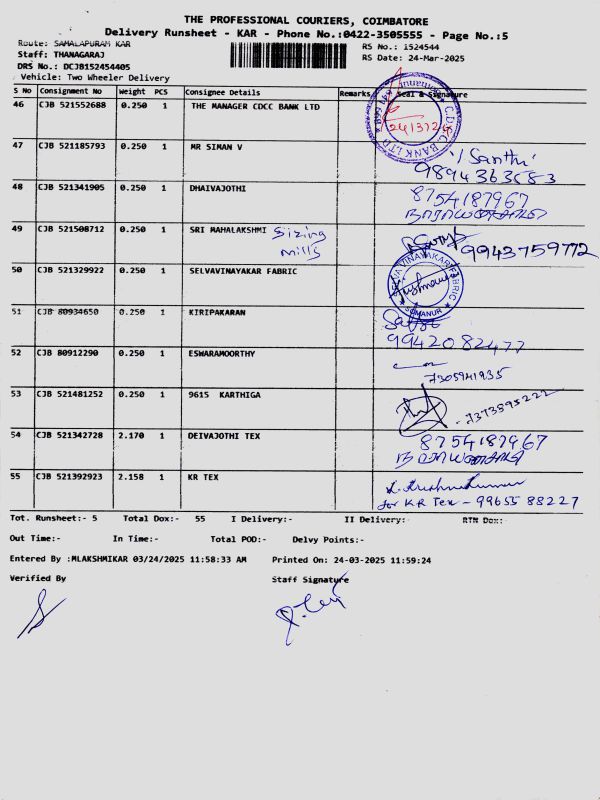 THE PROFESSIONAL COURIERS, COIMBATORE
Delivery Runsheet - KAR - Phone No.:0422-3505555 - Page No.:5
Route: SAMALAPURAM KAR
RS No.: 1524544
Staff: THANAGARAJ
RS Date: 24-Mar-2025
DRS No.: DCJB152454405
Vehicle: Two Wheeler Delivery
S No Consignment No Weight PCS Consignee Details Remarks Seal & Signature
46 CJB 521552688 0.250 1 THE MANAGER CDCC BANK LTD
47 CJB 521185793 0.250 1 MR SIMAN V 'Santhi'
9894363583
48 CJB 521341905 0.250 1 DHAIVAJOTHI 8754187967
49 CJB 521508712 0.250 1 SRI MAHALAKSHMI Sizing Mills 9943759772
50 CJB 521329922 0.250 1 SELVAVINAYAKAR FABRIC SELVAVINAYAKAR FABRIC SOMANUR
51 CJB 80934650 0.250 1 KIRIPAKARAN
9942082477
52 CJB 80912290 0.250 1 ESWARAMOORTHY
7305941935
53 CJB 521481252 0.250 1 9615 KARTHIGA 7373595222
54 CJB 521342728 2.170 1 DEIVAJOTHI TEX 8754187967
55 CJB 521392923 2.158 1 KR TEX
for KR Tex - 99655 88227
Tot. Runsheet:- 5 Total Dox:- 55 I Delivery:- II Delivery:- RTN Dox:-
Out Time:- In Time:- Total POD:- Delvy Points:-
Entered By :MLAKSHMIKAR 03/24/2025 11:58:33 AM Printed On: 24-03-2025 11:59:24
Verified By Staff Signature